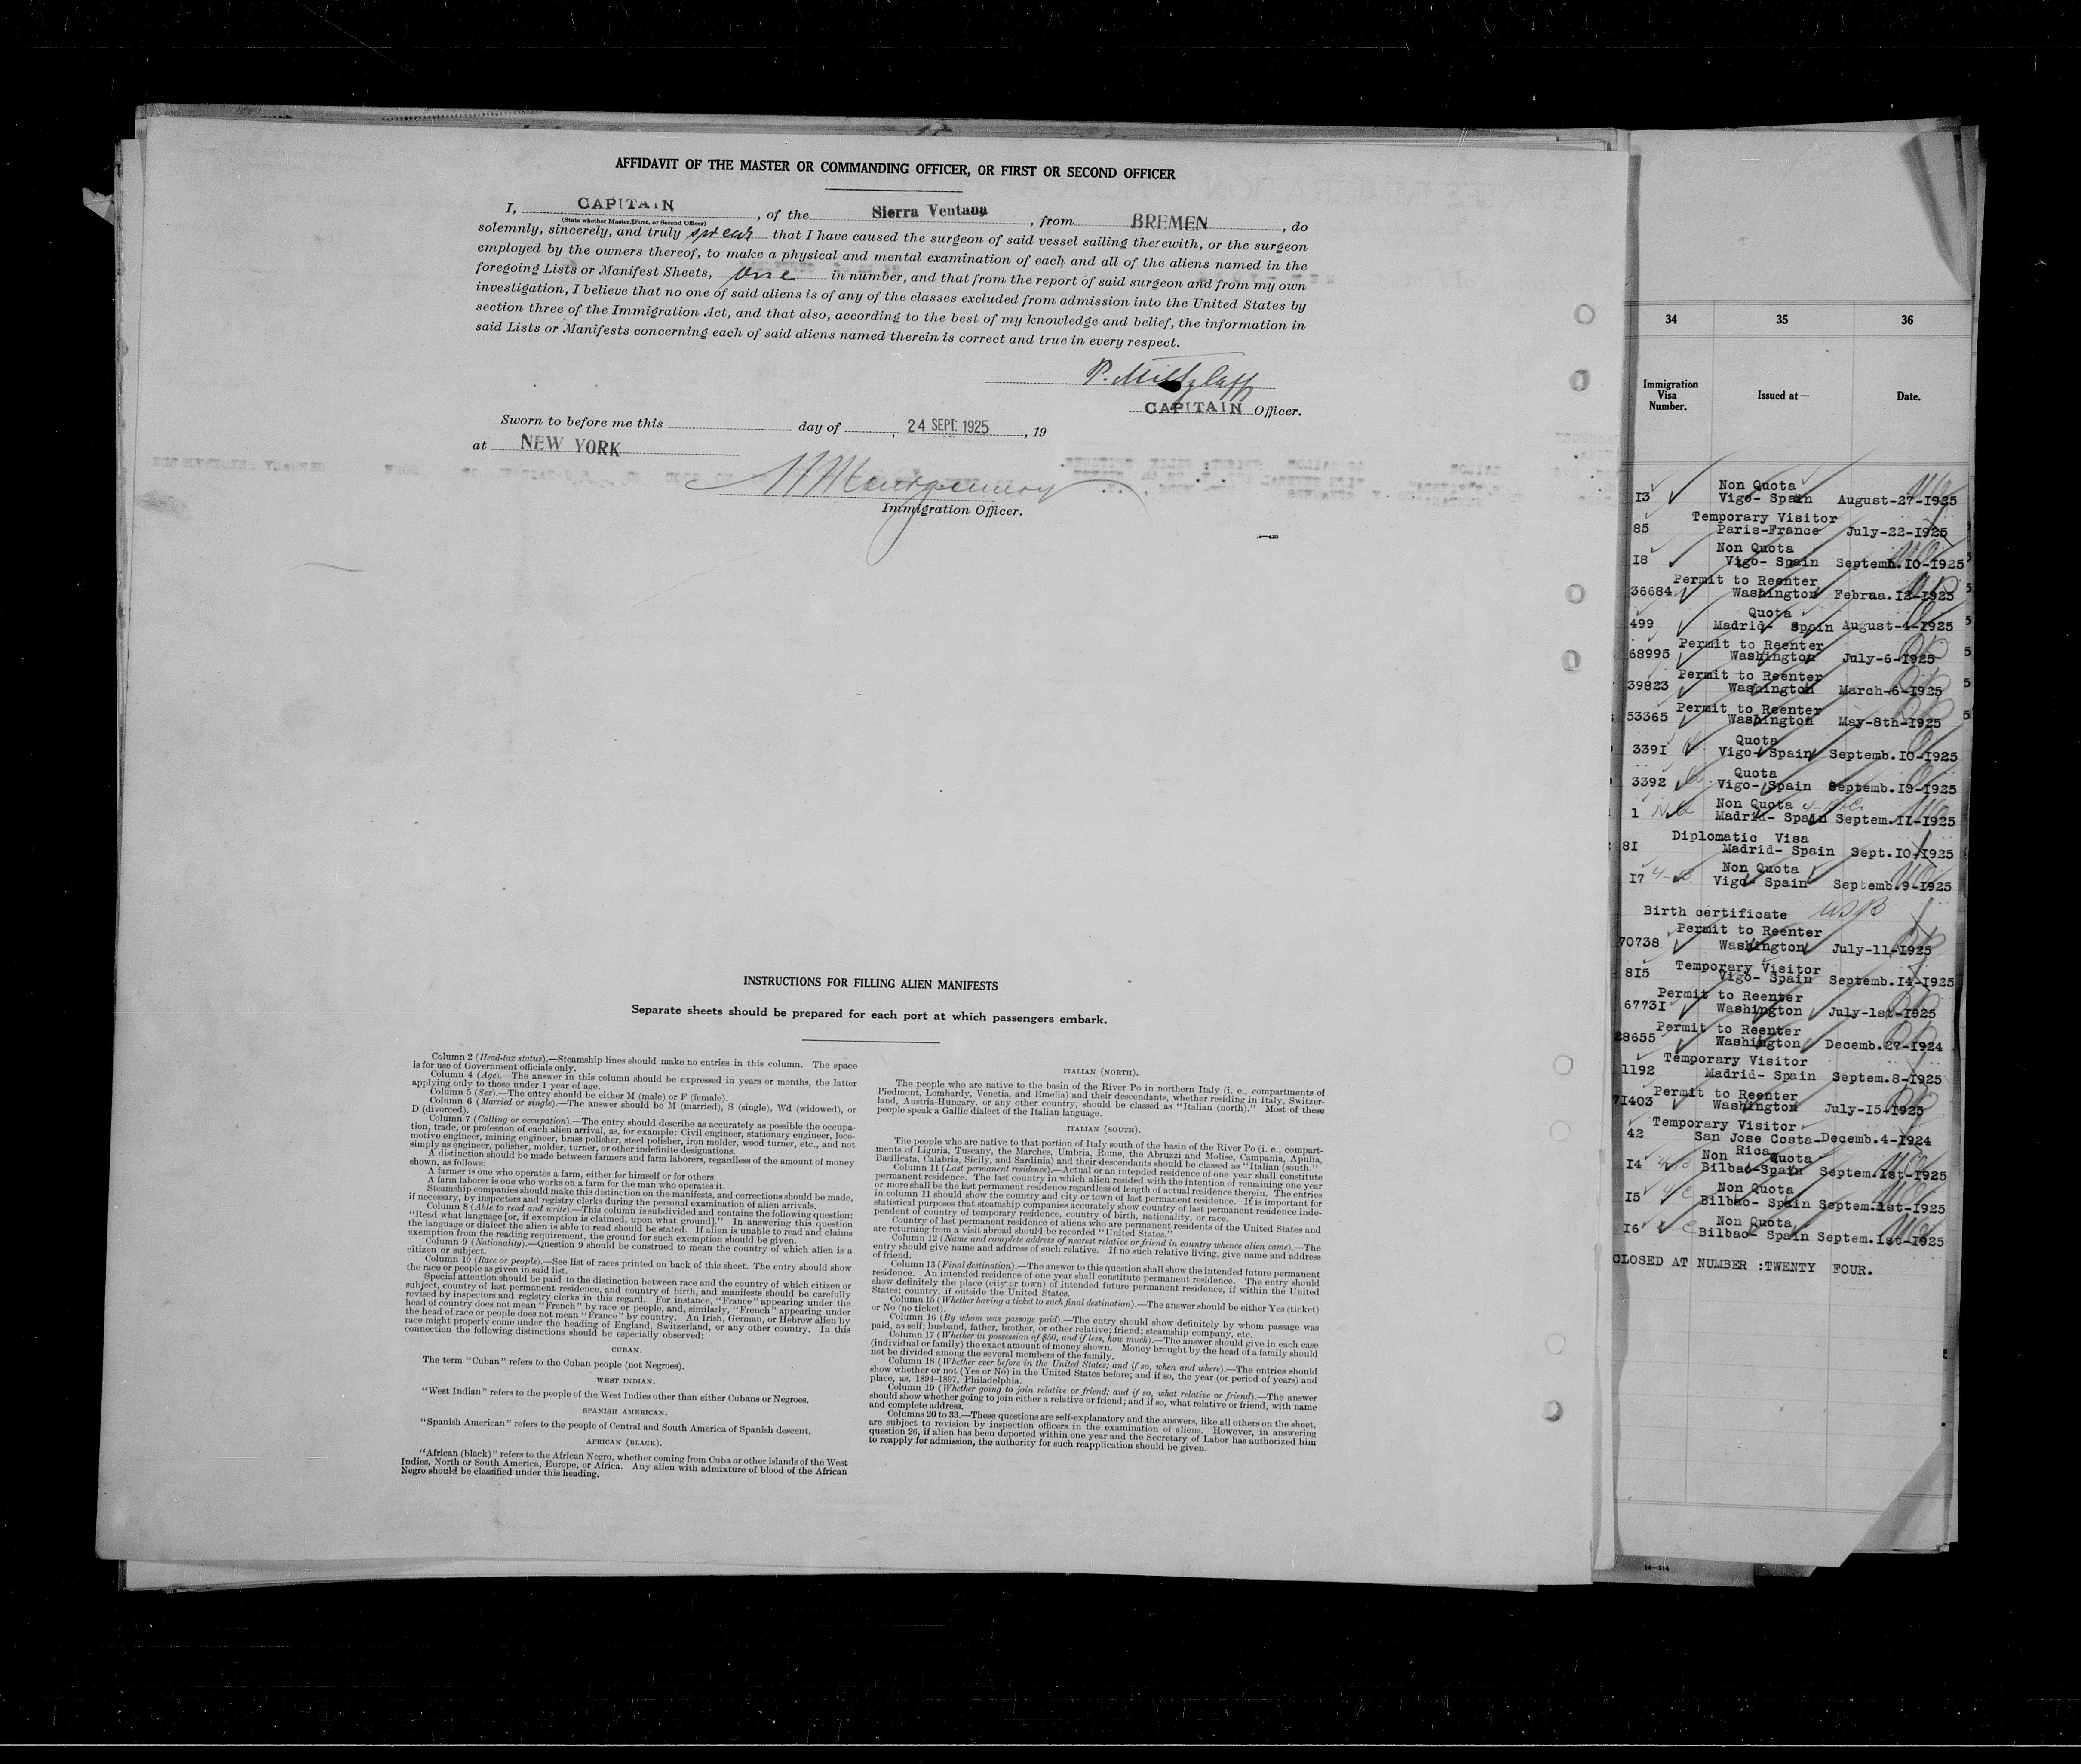 AFFIDAVIT OF THE MASTER OR COMMANDING OFFICER, OR FIRST OR SECOND OFFICER
I, CAPITAIN, of the Sierra Ventana, from BREMEN, do
(State whether Master, First, or Second Officer)
solemnly, sincerely, and truly swear that I have caused the surgeon of said vessel sailing therewith, or the surgeon
employed by the owners thereof, to make a physical and mental examination of each and all of the aliens named in the
foregoing Lists or Manifest Sheets, one in number, and that from the report of said surgeon and from my own
investigation, I believe that no one of said aliens is of any of the classes excluded from admission into the United States by
section three of the Immigration Act, and that also, according to the best of my knowledge and belief, the information in
said Lists or Manifests concerning each of said aliens named therein is correct and true in every respect.
CAPITAIN Officer.
Sworn to before me this day of 24 SEPT. 1925, 19
at NEW YORK
Immigration Officer.
INSTRUCTIONS FOR FILLING ALIEN MANIFESTS
Separate sheets should be prepared for each port at which passengers embark.
Column 2 (Head-tax status).—Steamship lines should make no entries in this column. The space
is for use of Government officials only.
Column 4 (Age).—The answer in this column should be expressed in years or months, the latter
applying only to those under 1 year of age.
Column 5 (Sex).—The entry should be either M (male) or F (female).
Column 6 (Married or single).—The answer should be M (married), S (single), Wd (widowed), or
D (divorced).
Column 7 (Calling or occupation).—The entry should describe as accurately as possible the occupa-
tion, trade, or profession of each alien arrival, as, for example: Civil engineer, stationary engineer, loco-
motive engineer, mining engineer, brass polisher, steel polisher, iron molder, wood turner, etc., and not
simply as engineer, polisher, molder, turner, or other indefinite designations.
A distinction should be made between farmers and farm laborers, regardless of the amount of money
shown, as follows:
A farmer is one who operates a farm, either for himself or for others.
A farm laborer is one who works on a farm for the man who operates it.
Steamship companies should make this distinction on the manifests, and corrections should be made,
if necessary, by inspectors and registry clerks during the personal examination of alien arrivals.
Column 8 (Able to read and write).—This column is subdivided and contains the following question:
"Read what language [or, if exemption is claimed, upon what ground]." In answering this question
the language or dialect the alien is able to read should be stated. If alien is unable to read and claims
exemption from the reading requirement, the ground for such exemption should be given.
Column 9 (Nationality).—Question 9 should be construed to mean the country of which alien is a
citizen or subject.
Column 10 (Race or people).—See list of races printed on back of this sheet. The entry should show
the race or people as given in said list.
Special attention should be paid to the distinction between race and the country of which citizen or
subject, country of last permanent residence, and country of birth, and manifests should be carefully
revised by inspectors and registry clerks in this regard. For instance, "France" appearing under the
head of country does not mean "French" by race or people, and, similarly, "French" appearing under
the head of race or people does not mean "France" by country. An Irish, German, or Hebrew alien by
race might properly come under the heading of England, Switzerland, or any other country. In this
connection the following distinctions should be especially observed:
CUBAN.
The term "Cuban" refers to the Cuban people (not Negroes).
WEST INDIAN.
"West Indian" refers to the people of the West Indies other than either Cubans or Negroes.
SPANISH AMERICAN.
"Spanish American" refers to the people of Central and South America of Spanish descent.
AFRICAN (BLACK).
"African (black)" refers to the African Negro, whether coming from Cuba or other islands of the West
Indies, North or South America, Europe, or Africa. Any alien with admixture of blood of the African
Negro should be classified under this heading.
ITALIAN (NORTH).
The people who are native to the basin of the River Po in northern Italy (i. e., compartments of
Piedmont, Lombardy, Venetia, and Emelia) and their descendants, whether residing in Italy, Switzer-
land, Austria-Hungary, or any other country, should be classed as "Italian (north)." Most of these
people speak a Gallic dialect of the Italian language.
ITALIAN (SOUTH).
The people who are native to that portion of Italy south of the basin of the River Po (i. e., compart-
ments of Liguria, Tuscany, the Marches, Umbria, Rome, the Abruzzi and Molise, Campania, Apulia,
Basilicata, Calabria, Sicily, and Sardinia) and their descendants should be classed as "Italian (south."
Column 11 (Last permanent residence).—Actual or an intended residence of one year shall constitute
permanent residence. The last country in which alien resided with the intention of remaining one year
or more shall be the last permanent residence regardless of length of actual residence therein. The entries
in column 11 should show the country and city or town of last permanent residence. If is important for
statistical purposes that steamship companies accurately show country of last permanent residence inde-
pendent of country of temporary residence, country of birth, nationality, or race.
Country of last permanent residence of aliens who are permanent residents of the United States and
are returning from a visit abroad should be recorded "United States."
Column 12 (Name and complete address of nearest relative or friend in country whence alien came).—The
entry should give name and address of such relative. If no such relative living, give name and address
of friend.
Column 13 (Final destination).—The answer to this question shall show the intended future permanent
residence. An intended residence of one year shall constitute permanent residence. The entry should
show definitely the place (city or town) of intended future permanent residence, if within the United
States; country, if outside the United States.
Column 15 (Whether having a ticket to such final destination).—The answer should be either Yes (ticket)
or No (no ticket).
Column 16 (By whom was passage paid).—The entry should show definitely by whom passage was
paid, as self; husband, father, brother, or other relative; friend; steamship company, etc.
Column 17 (Whether in possession of $50, and if less, how much).—The answer should give in each case
(individual or family) the exact amount of money shown. Money brought by the head of a family should
not be divided among the several members of the family.
Column 18 (Whether ever before in the United States; and if so, when and where).—The entries should
show whether or not (Yes or No) in the United States before; and if so, the year (or period of years) and
place, as, 1894–1897, Philadelphia.
Column 19 (Whether going to join relative or friend; and if so, what relative or friend).—The answer
should show whether going to join either a relative or friend; and if so, what relative or friend, with name
and complete address.
Columns 20 to 33.—These questions are self-explanatory and the answers, like all others on the sheet,
are subject to revision by inspection officers in the examination of aliens. However, in answering
question 26, if alien has been deported within one year and the Secretary of Labor has authorized him
to reapply for admission, the authority for such reapplication should be given.
34 35 36
Immigration Visa Number. Issued at— Date.
Non Quota
13 Vigo- Spain August-27-1925
Temporary Visitor
85 Paris-France July-22-1925
Non Quota
18 Vigo- Spain Septemb.10-1925
Permit to Reenter
36684 Washington Februa.12-1925
Quota
499 Madrid- Spain August-4-1925
Permit to Reenter
68995 Washington July-6-1925
Permit to Reenter
39823 Washington March-6-1925
Permit to Reenter
53365 Washington May-8th-1925
Quota
3391 Vigo-Spain Septemb.10-1925
Quota
3392 Vigo-Spain Septemb.10-1925
Non Quota
1 Madrid- Spain Septem.11-1925
Diplomatic Visa
81 Madrid- Spain Sept.10-1925
Non Quota
17 Vigo- Spain Septemb.9-1925
Birth certificate USB
Permit to Reenter
70738 Washington July-11-1925
Temporary Visitor
815 Vigo- Spain Septemb.14-1925
Permit to Reenter
67731 Washington July-1st-1925
Permit to Reenter
28655 Washington Decemb.27-1924
Temporary Visitor
1192 Madrid- Spain Septem.8-1925
Permit to Reenter
71403 Washington July-15-1925
Temporary Visitor
42 San Jose Costa-Decemb.4-1924
Rica
Non Quota
14 Bilbao-Spain Septem.1st-1925
Non Quota
15 Bilbao- Spain Septem.1st-1925
Non Quota
16 Bilbao- Spain Septem.1st-1925
CLOSED AT NUMBER :TWENTY FOUR.
14-214